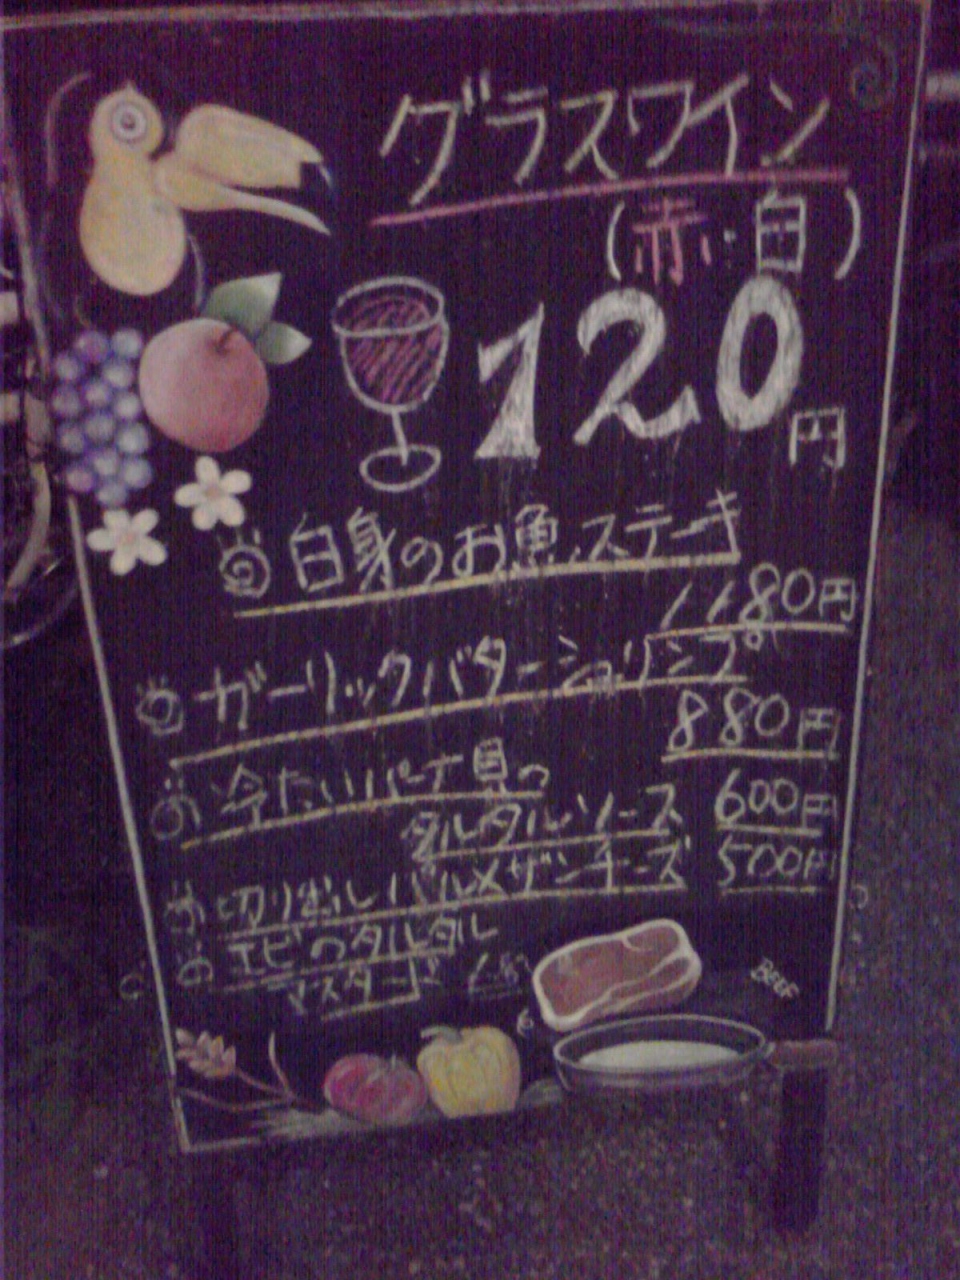 グラスワイン
(赤・白)
120円
◎白身のお魚ステーキ
1180円
◎ガーリックバターシュリンプ
880円
◎冷たいパーナ貝の
タルタルソース 600円
◎切り出しパルメザンチーズ 500円
◎エビのタルタル
マスタード
BEEF